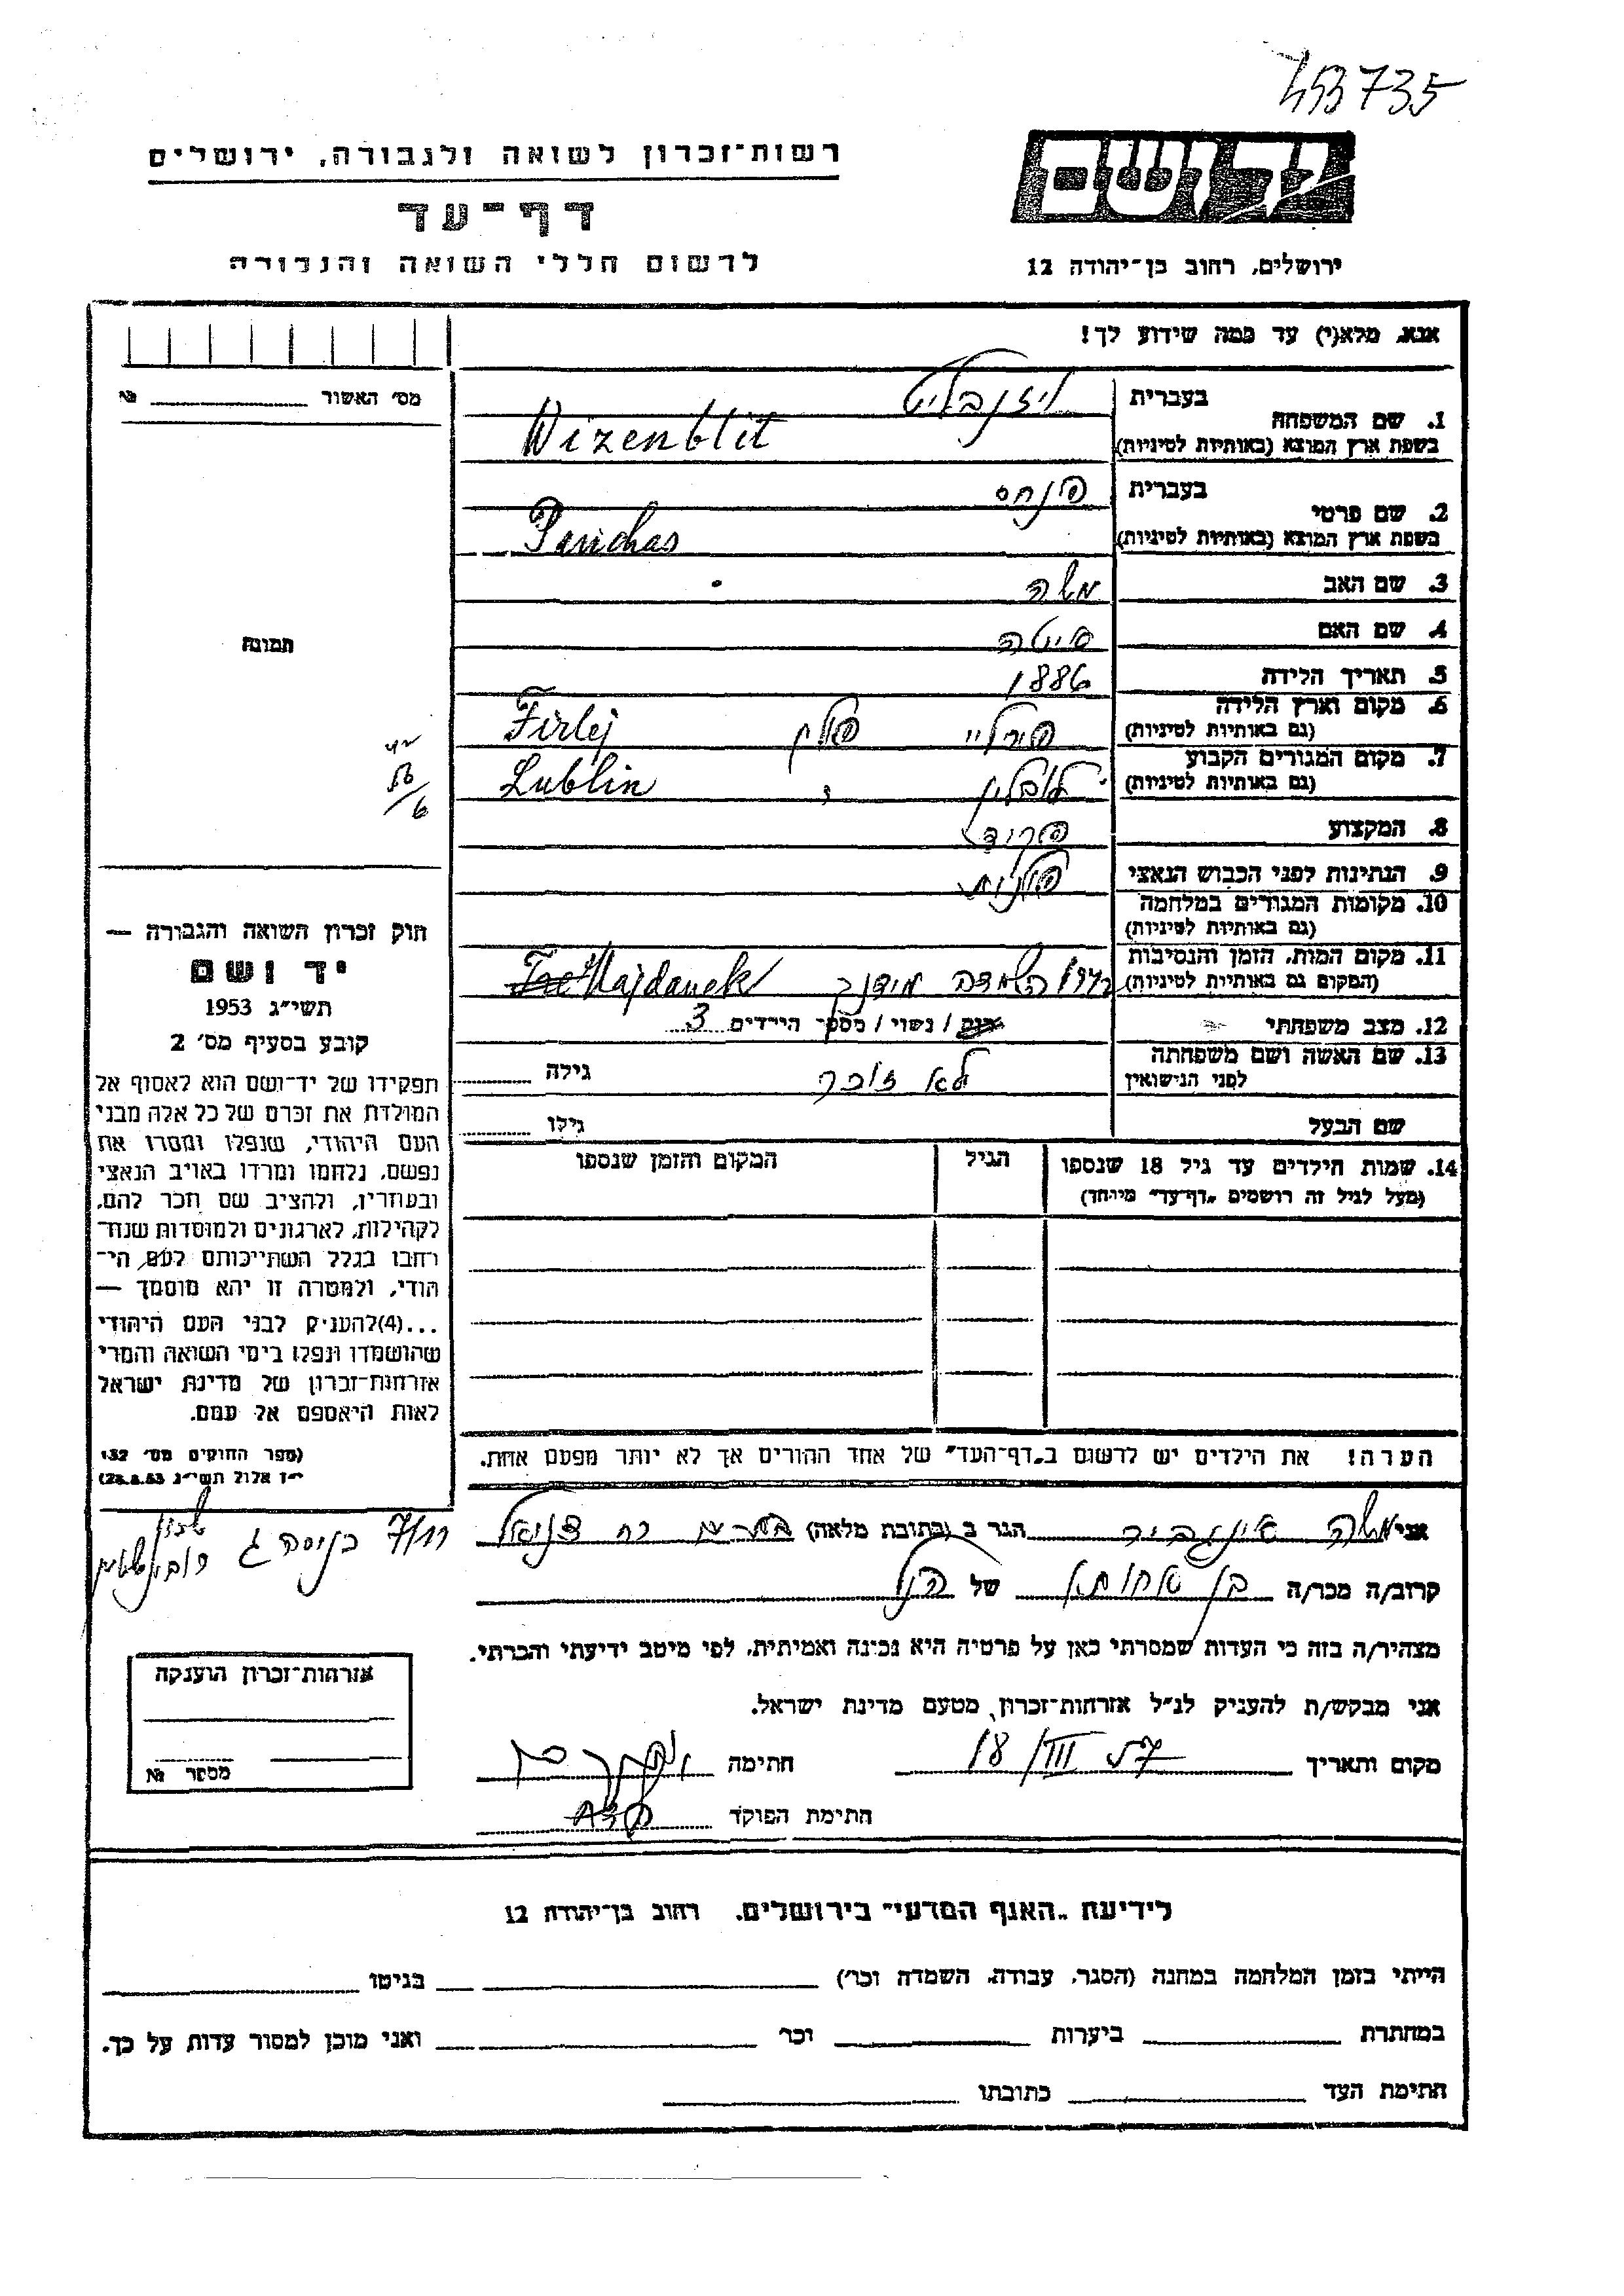 453735
רשות־זכרון לשואה ולגבורה, ירושלים
דף־עד
לרשום חללי השואה והגבורה
יד ושם
ירושלים, רחוב בן־יהודה 12
אנא, מלא(י) עד כמה שידוע לך!
מס' האשור №
1. שם המשפחה בעברית ויזנבליט
בשפת ארץ המוצא (באותיות לטיניות) Wizenblit
2. שם פרטי בעברית פנחס
בשפת ארץ המוצא (באותיות לטיניות) Pinchas
3. שם האב משה
4. שם האם
5. תאריך הלידה 1886
6. מקום וארץ הלידה (גם באותיות לטיניות) פירליי פולין Firlej
7. מקום המגורים הקבוע (גם באותיות לטיניות) לובלין Lublin
8. המקצוע פקיד
9. הנתינות לפני הכבוש הנאצי פולנית
10. מקומות המגורים במלחמה (גם באותיות לטיניות)
11. מקום המות, הזמן והנסיבות (המקום גם באותיות לטיניות) השמדה מידנק Majdanek
12. מצב משפחתי רווק / נשוי / מספר הילדים 3
13. שם האשה ושם משפחתה לפני הנישואין לא זוכר גילה
שם הבעל גילו
14. שמות הילדים עד גיל 18 שנספו (מעל לגיל זה רושמים "דף־עד" מיוחד)
הגיל
המקום והזמן שנספו
הערה! את הילדים יש לרשום ב"דף־העד" של אחד ההורים אך לא יותר מפעם אחת.
תמונה
חוק זכרון השואה והגבורה —
יד ושם
תשי"ג 1953
קובע בסעיף מס' 2
תפקידו של יד־ושם הוא לאסוף אל
המולדת את זכרם של כל אלה מבני
העם היהודי, שנפלו ומסרו את
נפשם, נלחמו ומרדו באויב הנאצי
ובעוזריו, ולהציב שם וזכר להם,
לקהילות, לארגונים ולמוסדות שנח־
רבו בגלל השתייכותם לעם הי־
הודי, ולמטרה זו יהא מוסמך —
...(4)להעניק לבני העם היהודי
שהושמדו ונפלו בימי השואה והמרי
אזרחות־זכרון של מדינת ישראל
לאות היאספם אל עמם.
(ספר החוקים מס' 132
י"ז אלול תשי"ג 28.8.53)
אני משה הגר ב (כתובת מלאה)
7/11 כניסה ג שכון
קרוב/ה מכר/ה בן של הנ"ל
מצהיר/ה בזה כי העדות שמסרתי כאן על פרטיה היא נכונה ואמיתית, לפי מיטב ידיעתי והכרתי.
אני מבקש/ת להעניק לנ"ל אזרחות־זכרון מטעם מדינת ישראל.
מקום ותאריך 18/III 57 חתימה
חתימת הפוקד
אזרחות־זכרון הוענקה
מספר №
לידיעת "האגף המדעי" בירושלים, רחוב בן־יהודה 12
הייתי בזמן המלחמה במחנה (הסגר, עבודה, השמדה וכו') בגיטו
במחתרת ביערות וכו' ואני מוכן למסור עדות על כך.
חתימת העד כתובתו